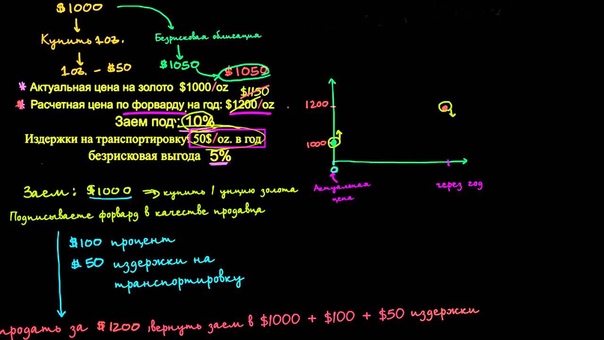 $1000
Купить 1 oz.
Безрисковая облигация
1 oz. - $50
$1050
$1050
* Актуальная цена на золото $1000/oz
$1150
* Расчетная цена по форварду на год: $1200/oz
Заем под: 10%
Издержки на транспортировку: 50$/oz. в год
безрисковая выгода 5%
1200
1000
0
Актуальная
цена
через год
Заем: $1000 ⇒ купить 1 унцию золота
Подписываете форвард в качестве продавца
$100 процент
$50 издержки на
транспортировку
продать за $1200, вернуть заем в $1000 + $100 + $50 издержки